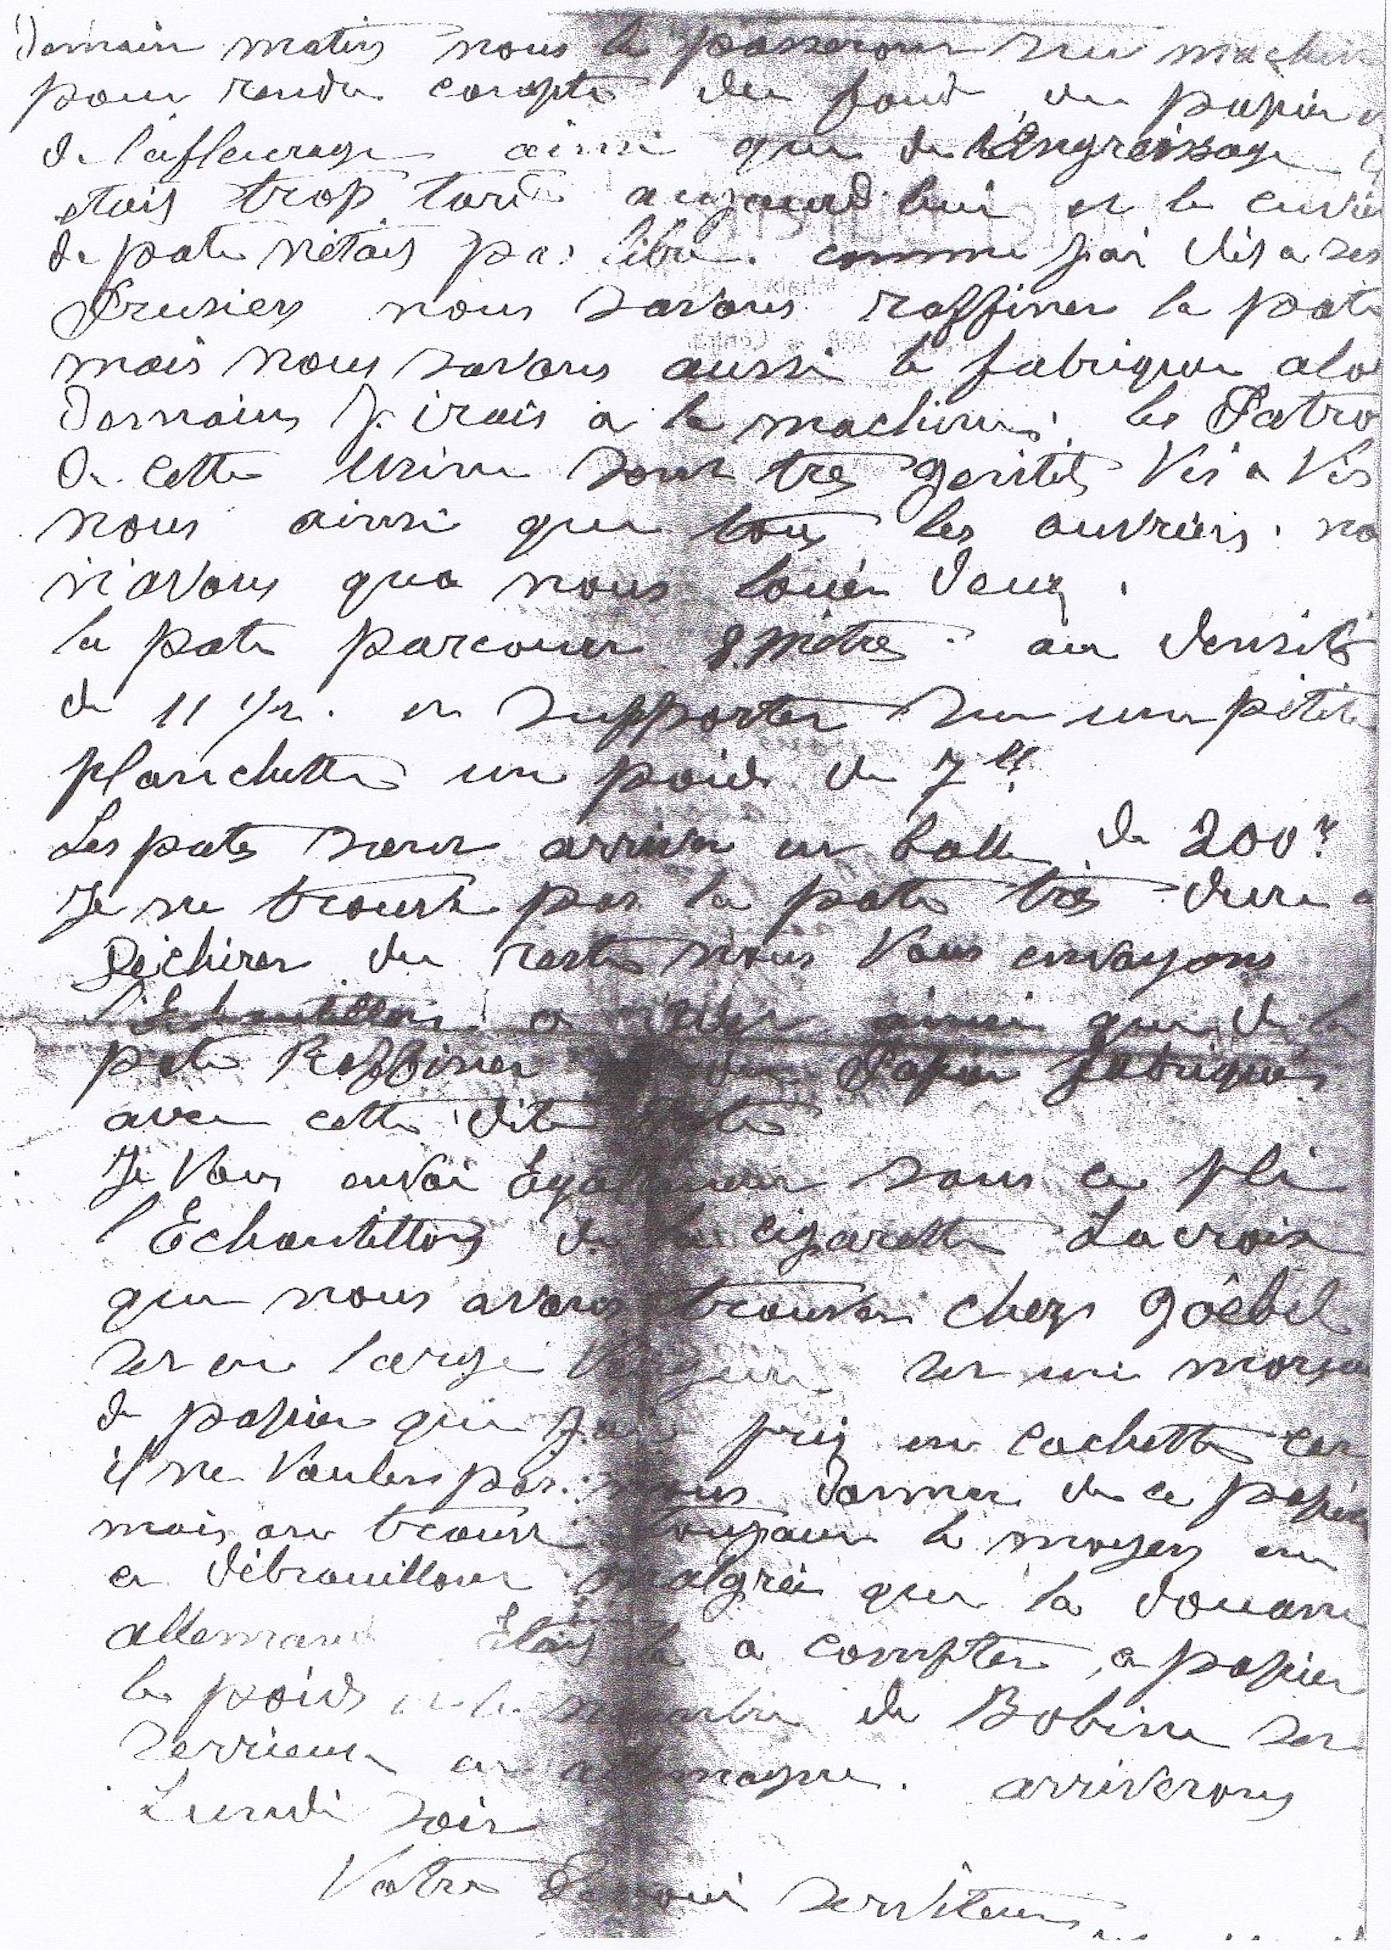 Demain matin nous la passerons sur machine
pour rendre compte du fond du papier
de l'afleurage ainsi que de l'Engraissage
etais trop tard aujourd'hui et le cuvier
de pate n'étais pas libre. comme j'ai dis a ses
Prusiens nous savons raffiner la pate
mais nous savons aussi la fabriquer alo
Demain J. irais a la machine. les Patro
de cette Usine sont tres gentils Vis a Vis
nous ainsi que tous les ouvriers. no
n'avons qua nous louér deux.
la pate parcouru 8 mètres au densité
de 11 1/2. et supporter sur une pétite
planchette un poids de 7
Les pates arriver en balle de 200
Je ne trouve pas la pate très dure a
Déchirer du reste nous Vous envoyons
l'Echantillon a ainsi que de la
pate Raffiner du Papier fabriqués
avec cette dite pate
Je Vous envoi également sous ce pli
l'Echantillon de la cigarette Lacroix
que nous avons trouver chez Göebel
ses en large ses un morceau
de papier que j'ai pris en cachette car
il ne Voulais pas nous donner de ce papier
mais on trouve toujour le moyen en
ce débrouillant malgré que la douane
allemand étais la a compter ce papier
le poids et le nombre de Bobine ses
serrieux en allemagne. arriverons
Lundi soir
Votre Dévoué serviteur